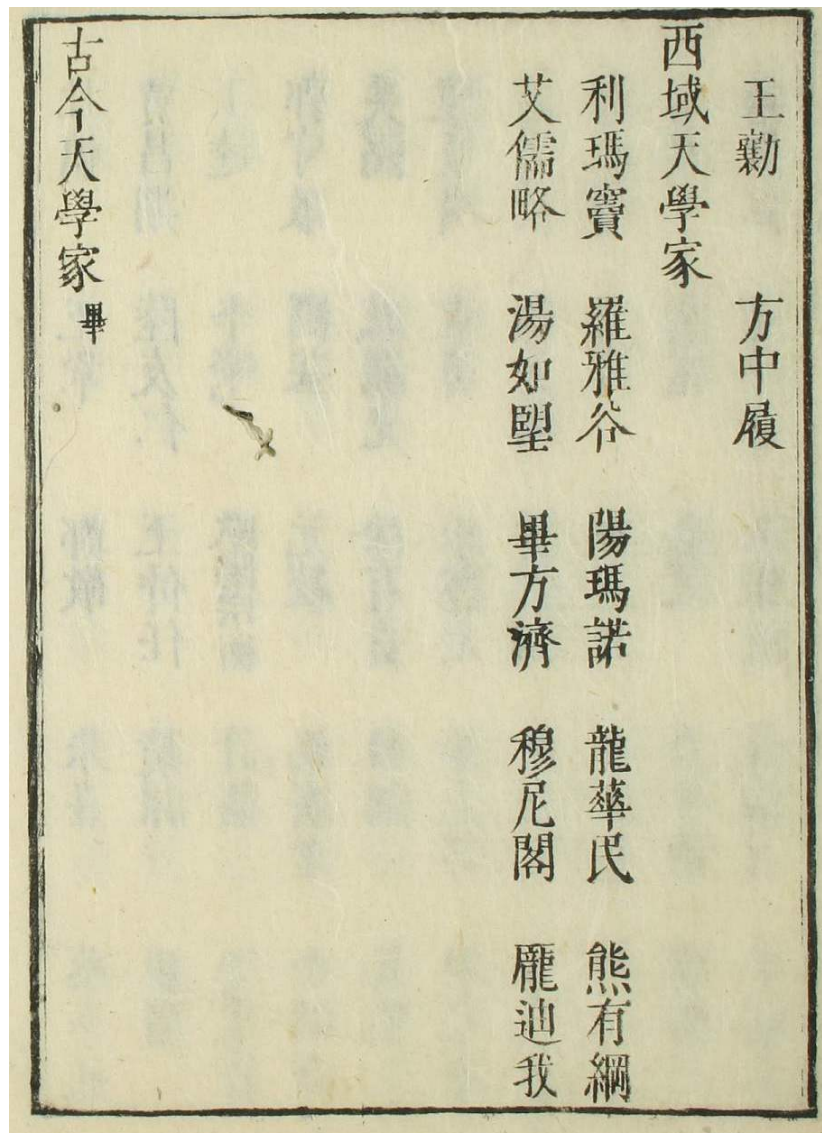 王勷　方中履
西域天學家
利瑪竇　羅雅谷　陽瑪諾　龍華民　熊有綱
艾儒略　湯如望　畢方濟　穆尼閣　龐迪我
古今天學家畢